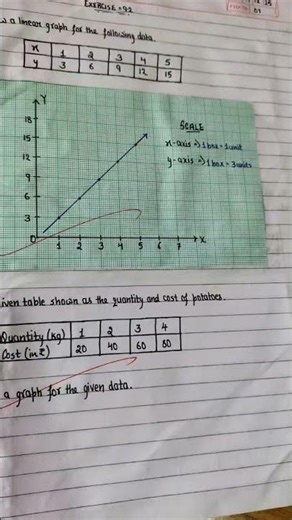 EXERCISE - 9.2
a linear graph for the following data.
x 1 2 3 4 5
y 3 6 9 12 15
Y
18
15
12
9
6
3
0
1 2 3 4 5 6 7 X
SCALE
x-axis ⇒ 1 box = 1 unit
y-axis ⇒ 1 box = 3 units
given table shown as the quantity and cost of potatoes.
Quantity (kg) 1 2 3 4
Cost (in ₹) 20 40 60 80
a graph for the given data.